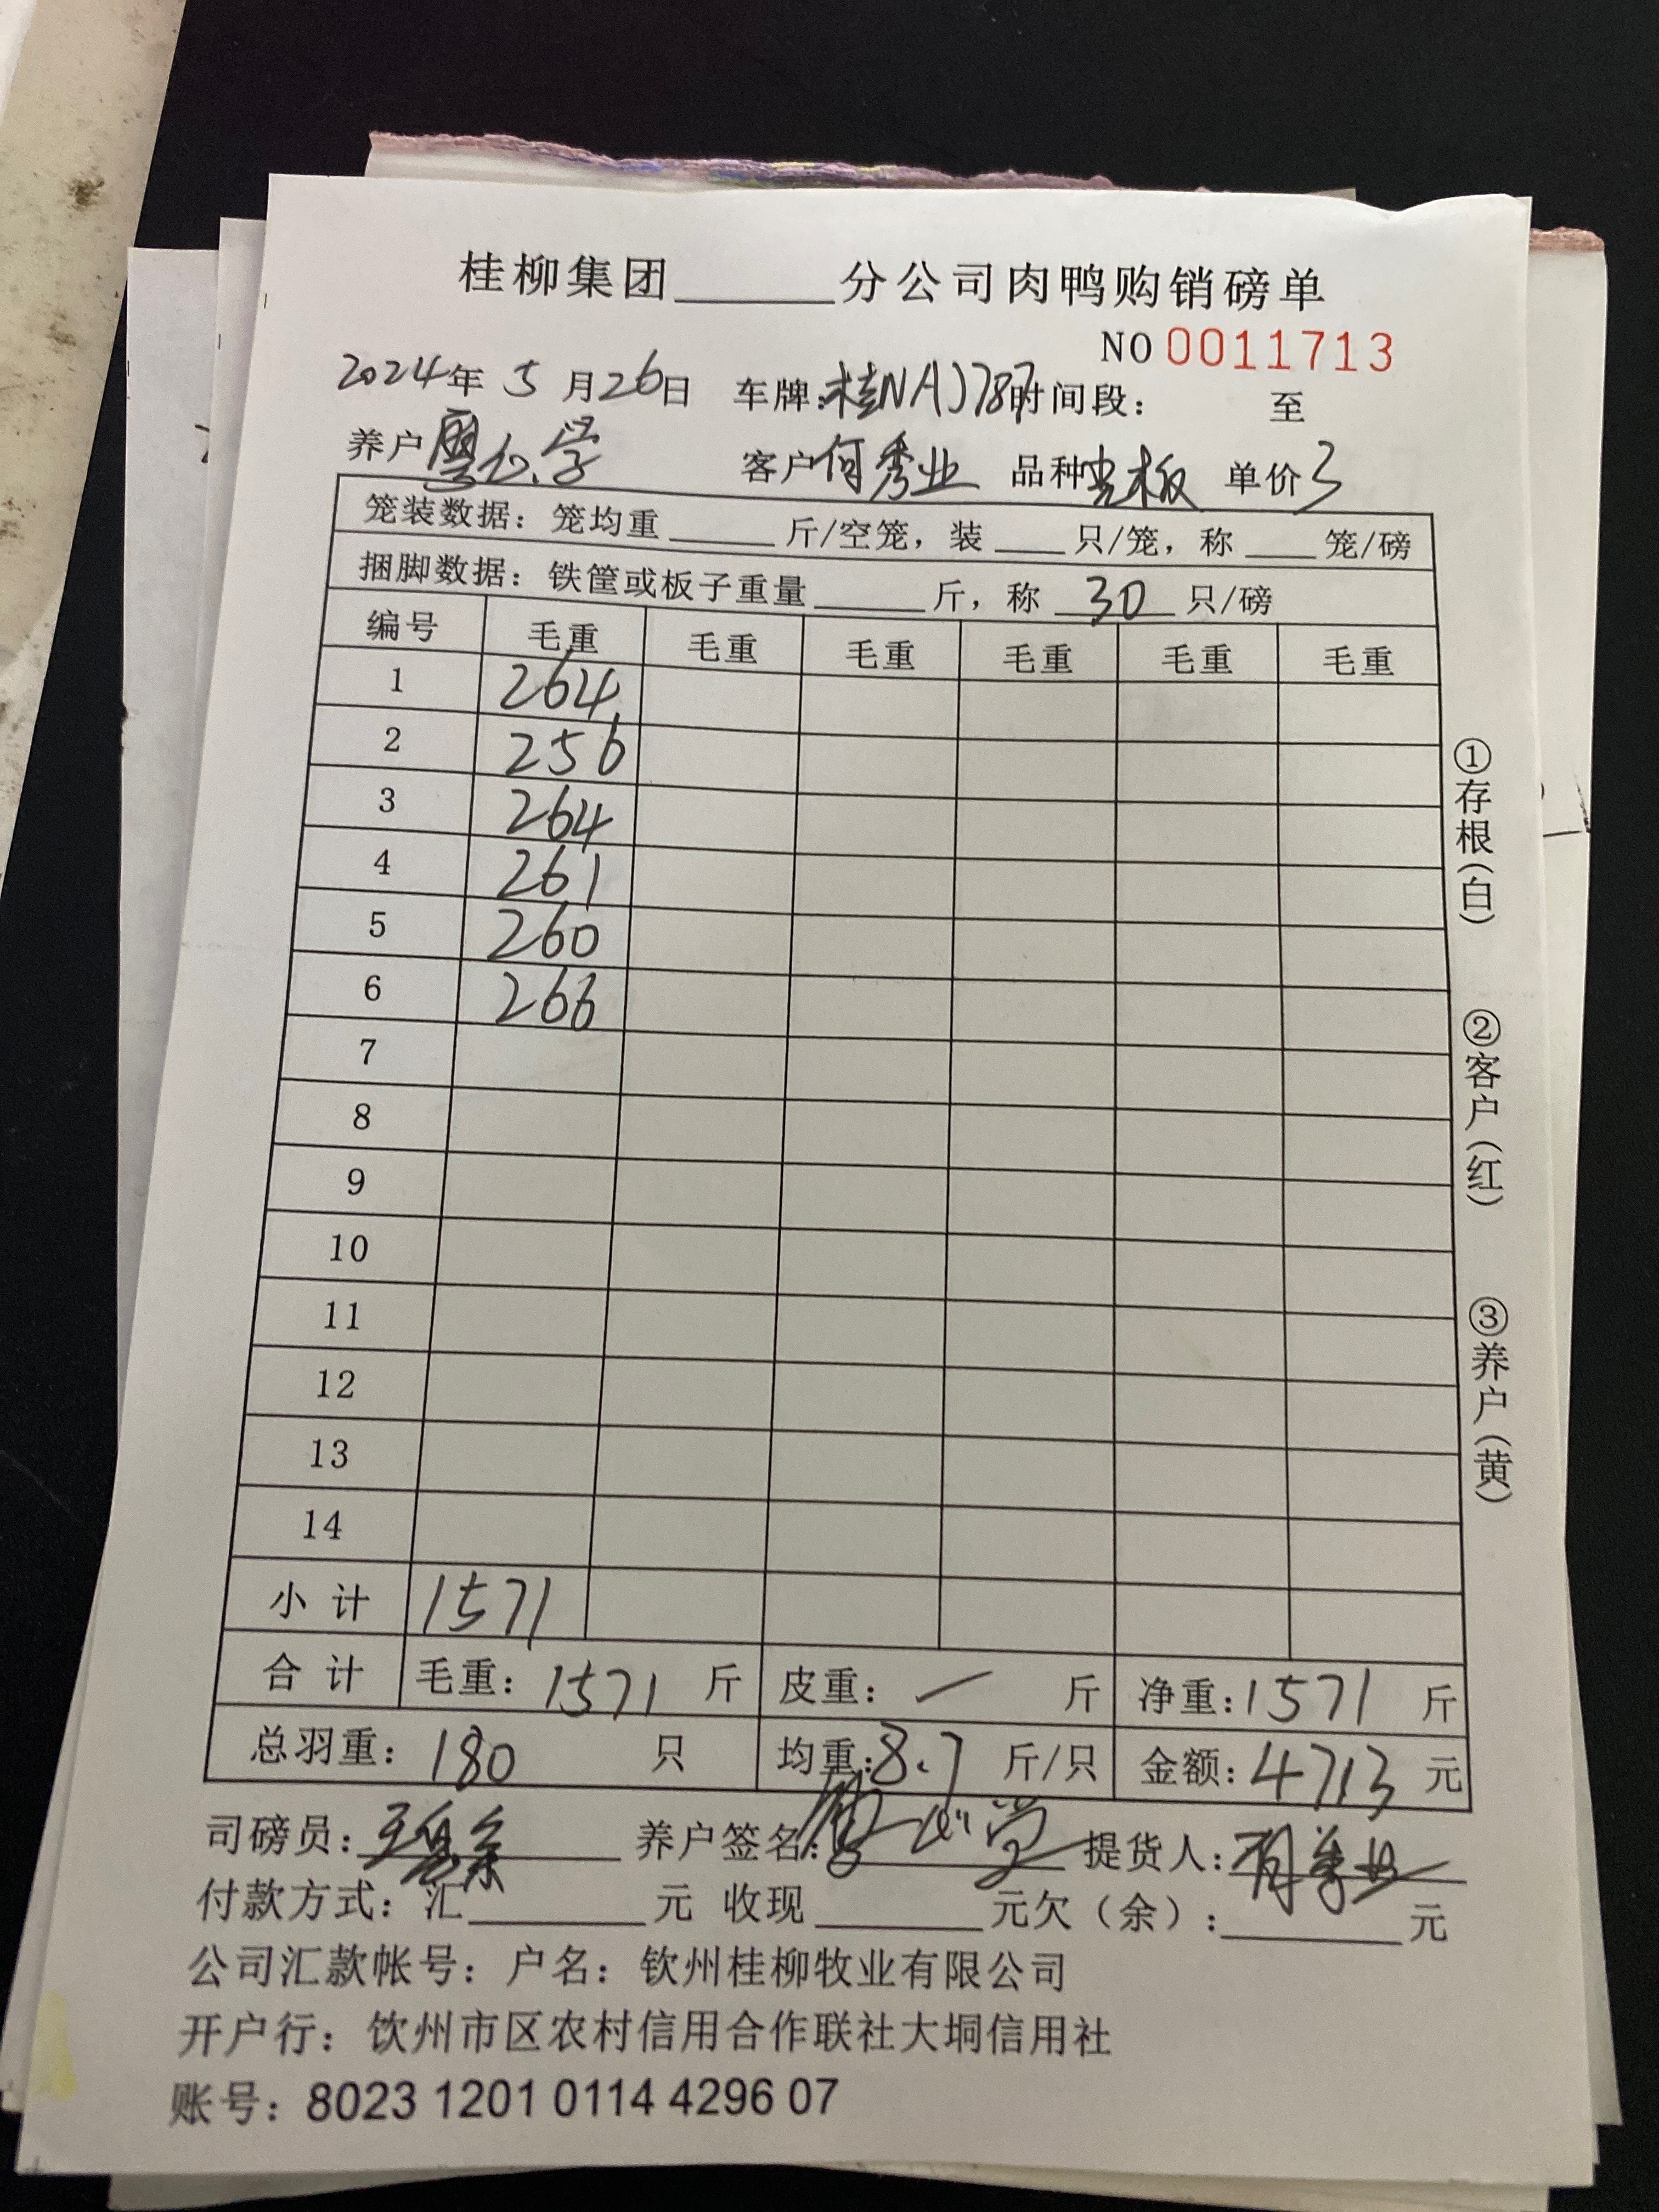 桂柳集团______分公司肉鸭购销磅单
NO 0011713
2024年 5 月26日 车牌:桂NAJ787时间段: 至
养户 廖仁学 客户何秀业 品种 板 单价3
笼装数据: 笼均重______斤/空笼, 装____只/笼, 称____笼/磅
捆脚数据: 铁筐或板子重量______斤, 称 30 只/磅
编号 毛重 毛重 毛重 毛重 毛重 毛重
1 264
2 256
3 264
4 261
5 260
6 266
7
8
9
10
11
12
13
14
小计 1571
合计 毛重: 1571 斤 皮重: — 斤 净重:1571 斤
总羽重: 180 只 均重:8.7 斤/只 金额:4713 元
司磅员: 养户签名: 提货人:
付款方式: 汇______元 收现______元欠(余):______元
公司汇款帐号: 户名: 钦州桂柳牧业有限公司
开户行: 钦州市区农村信用合作联社大垌信用社
账号: 8023 1201 0114 4296 07
①存根(白)
②客户(红)
③养户(黄)